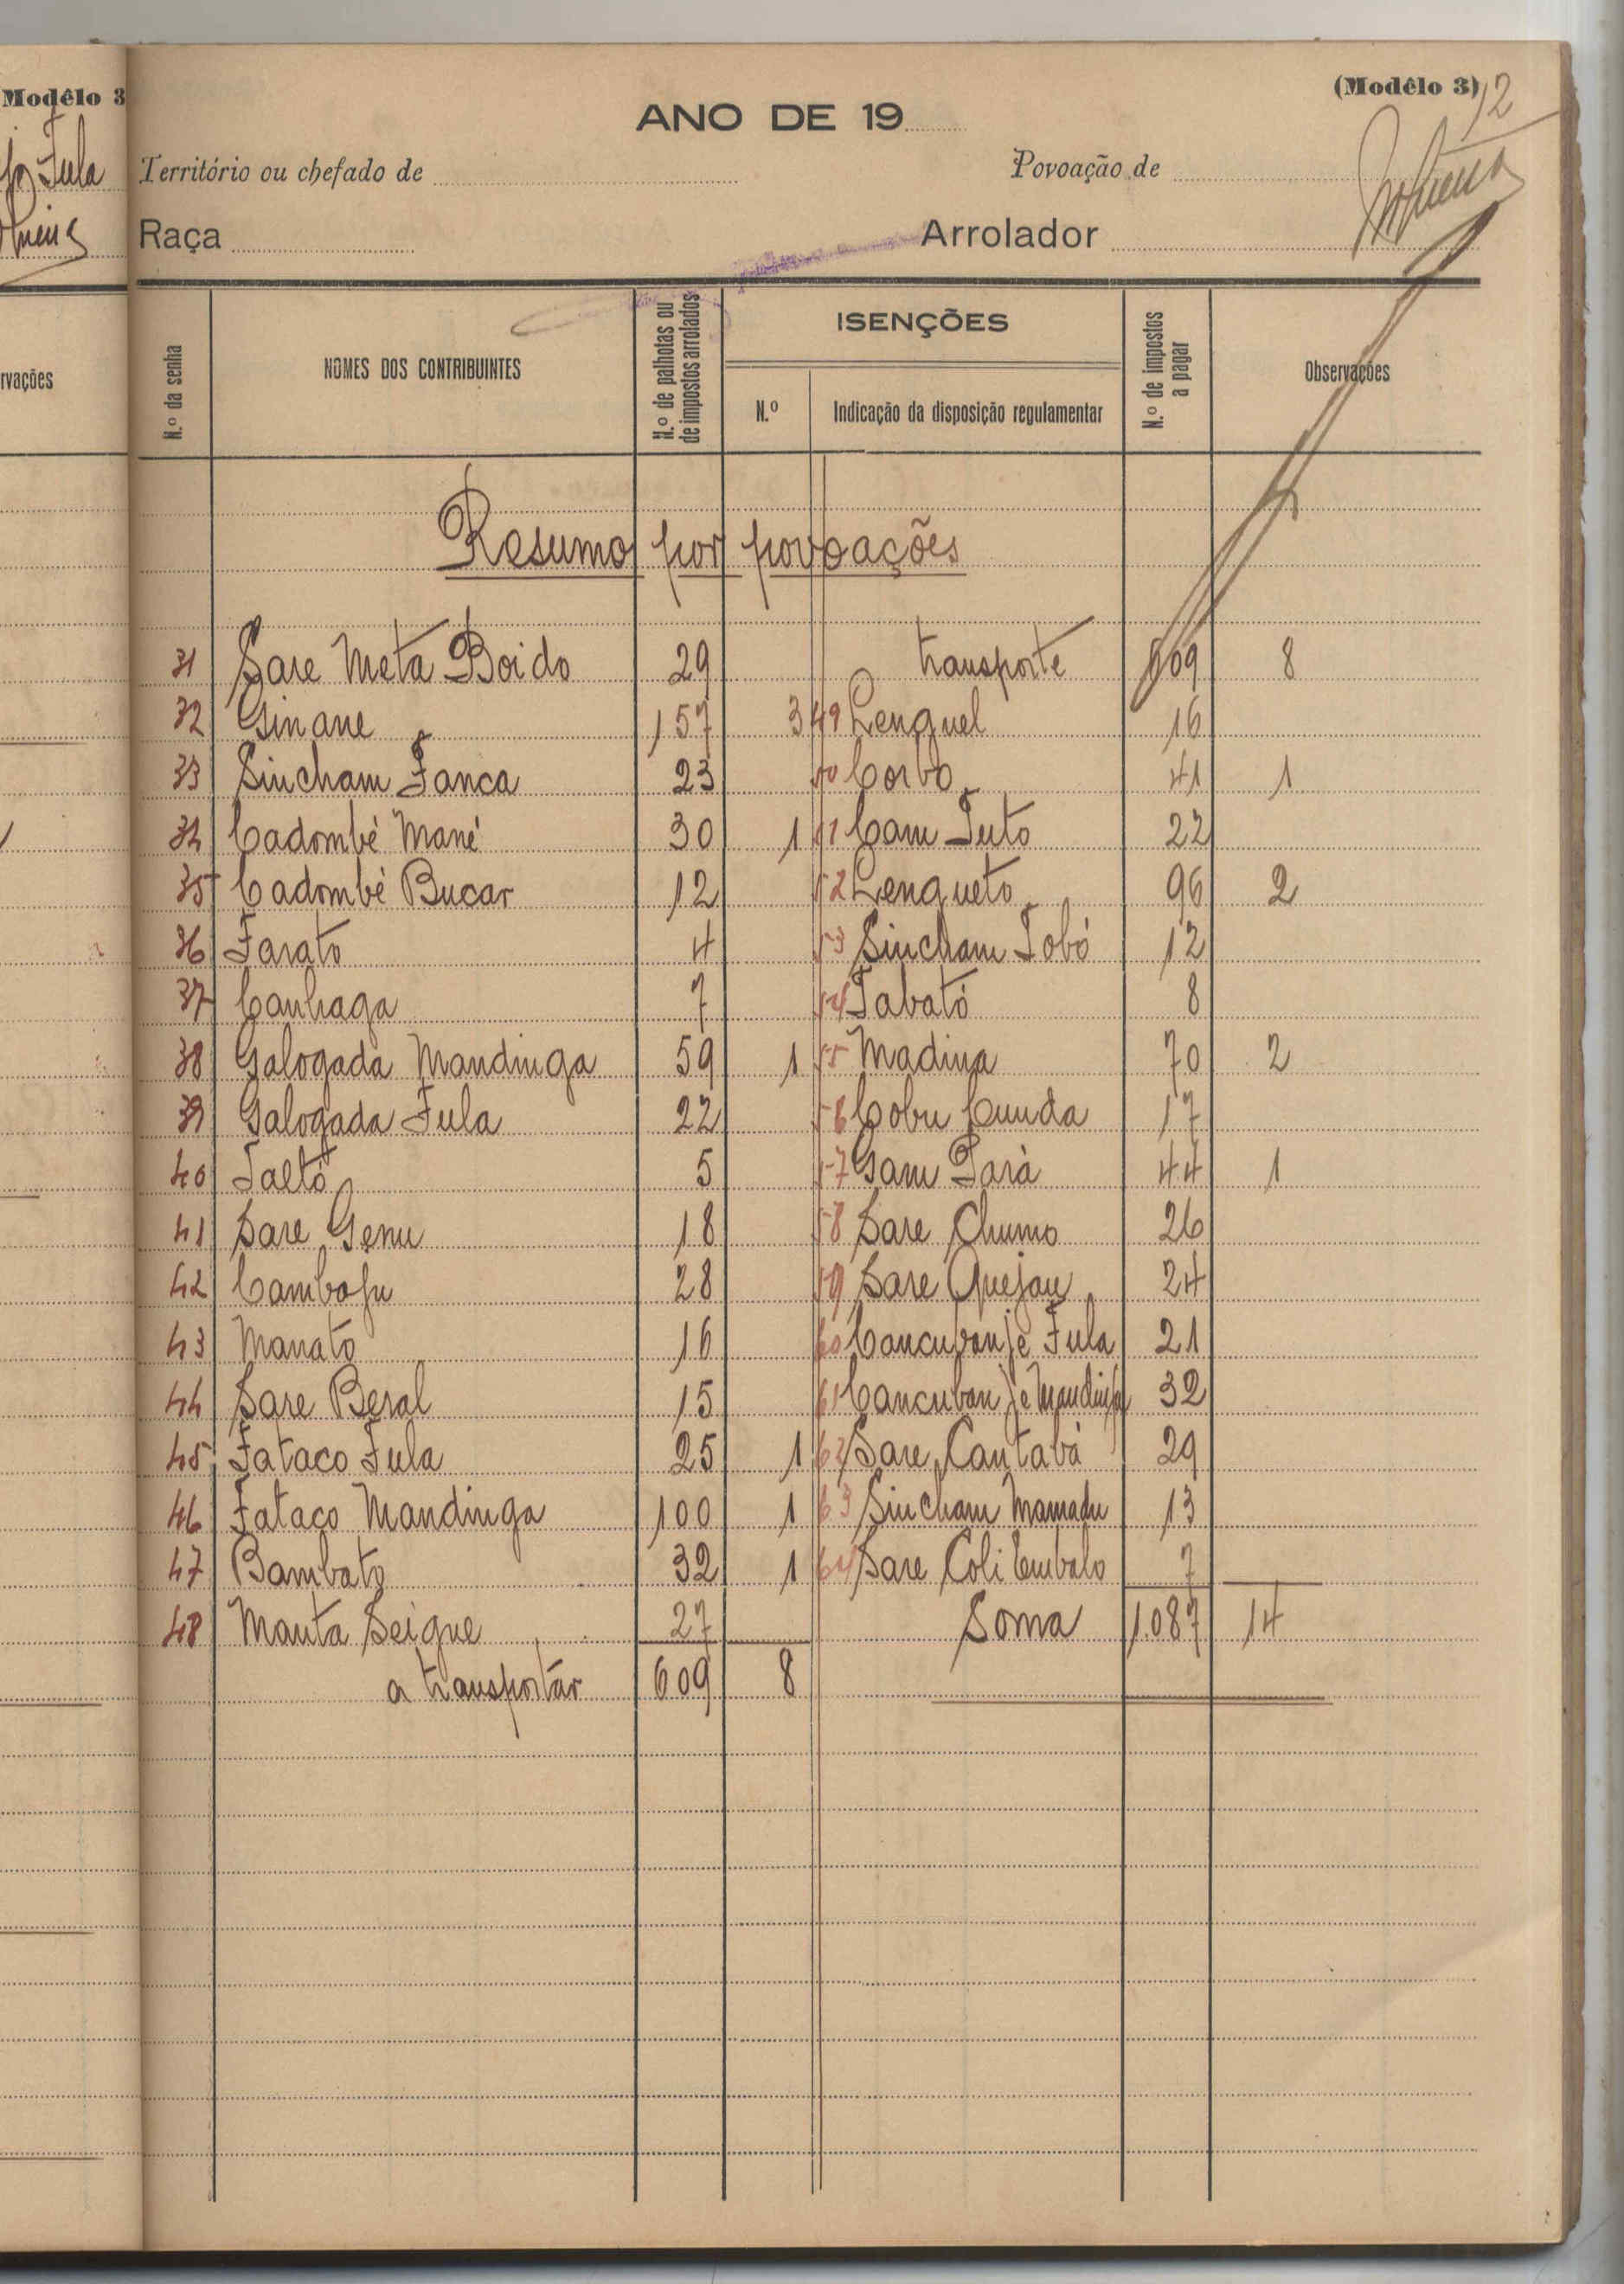 Modêlo 3
Fula
rvações
(Modêlo 3)
12
ANO DE 19
Território ou chefado de
Povoação de
Raça
Arrolador
N.º da senha
NOMES DOS CONTRIBUINTES
N.º de palhotas ou de impostos arrolados
ISENÇÕES
N.º
Indicação da disposição regulamentar
N.º de impostos a pagar
Observações
Resumo por povoações
31 Sare Meta Boido 29
32 Ginane 157 3
33 Sincham Fanca 23
34 Cadombé Mané 30 1
35 Cadombé Bucar 12
36 Farato 4
37 Canhaga 7
38 Galogada Mandinga 59 1
39 Galogada Fula 22
40 Taelto 5
41 Sare Genu 18
42 Cambaju 28
43 Manato 16
44 Sare Beral 15
45 Fataco Fula 25 1
46 Fataco Mandinga 100 1
47 Bambato 32 1
48 Manta Seigue 27
a transportar 609 8
transporte 609 8
49 Lenquel 16
50 Corbo 41 1
51 Cam Tuto 22
52 Lenqueto 96 2
53 Sincham Tobó 12
54 Tabató 8
55 Madina 70 2
56 Cobu Cunda 17
57 Gam Pará 44 1
58 Sare Chumo 26
59 Sare Quejau 24
60 Cancubanje Fula 21
61 Cancubanje Mandinga 32
62 Sare Cantabá 29
63 Sincham Mamadu 13
64 Sare Coli Embalo 7
Soma 1.087 14